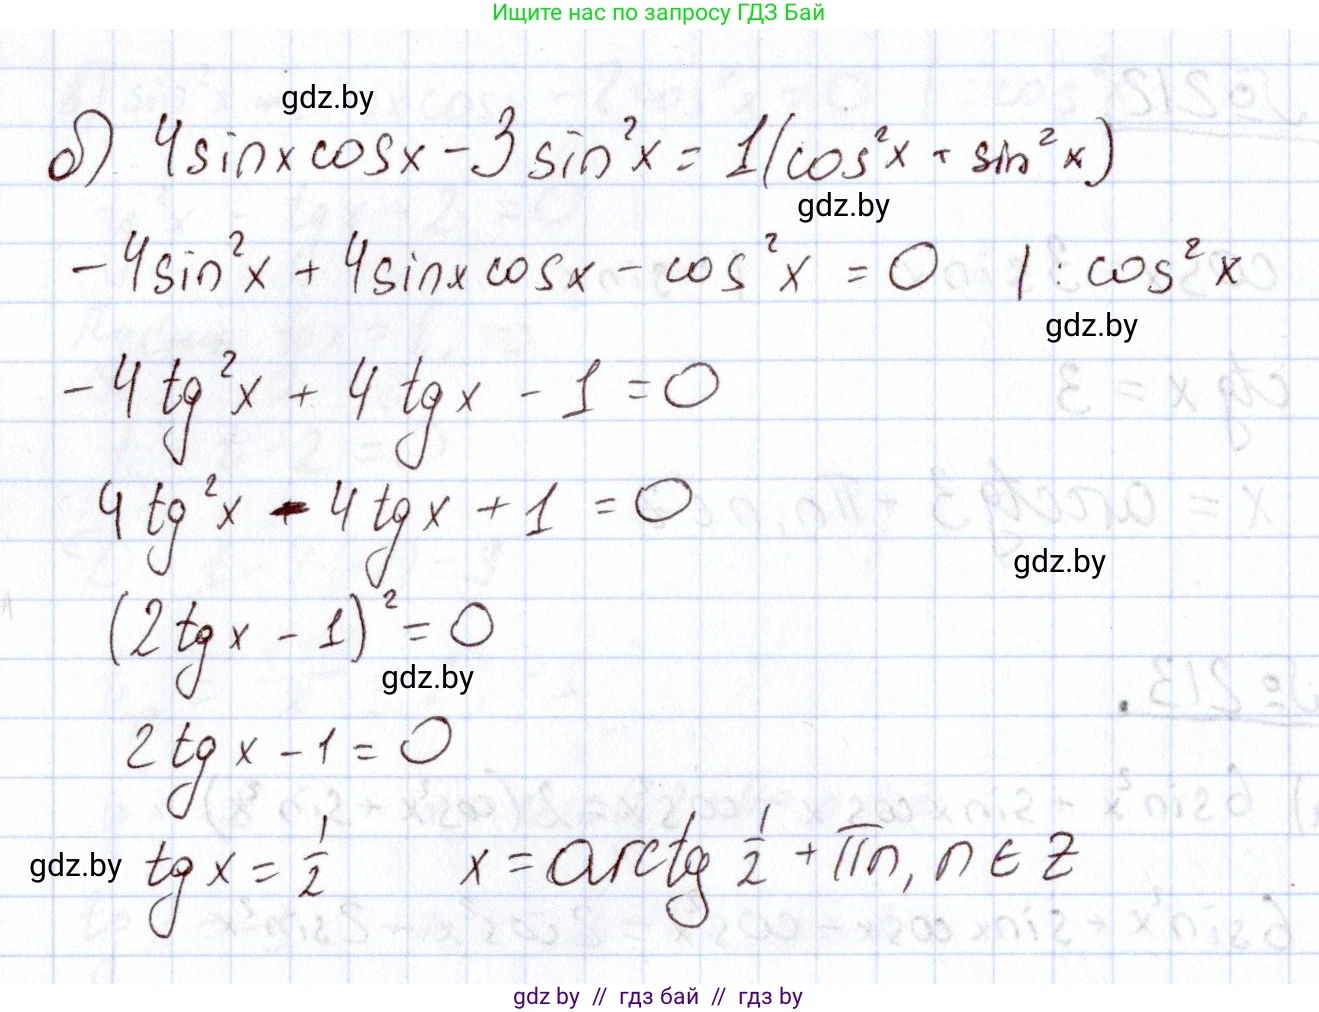 Ищите нас по запросу ГДЗ Бай
gdz.by
б) 4sinx cosx - 3sin²x = 1(cos²x + sin²x)
gdz.by
-4sin²x + 4sinx cosx - cos²x = 0 | : cos²x
gdz.by
-4tg²x + 4tgx - 1 = 0
4tg²x - 4tgx + 1 = 0
gdz.by
(2tgx - 1)² = 0
gdz.by
2tgx - 1 = 0
gdz.by tgx = 1/2 x = arctg 1/2 + πn, n ∈ Z
gdz by // гдз бай // гдз by